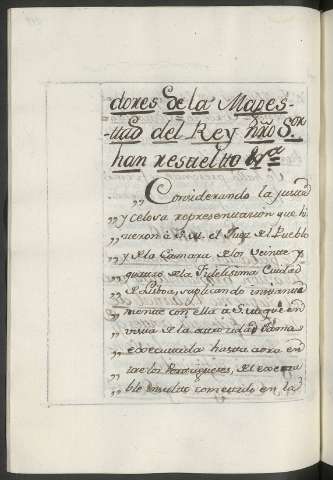 dores de la Mages-
-tad del Rey nr̃o S.or
han resuelto &.a
,, Considerando la justa
,, y celosa representacion que hi
,, cieron à S.M. el Juez del Pueblo
,, y de la Camara de los Veinte y
,, quatro de la Fidelisima Ciudad
,, de Lisboa, suplicando instante
,, mente con ella a S.M. que en
,, vista de la atrocidad jamas
,, executada hasta aora en
,, tre los Portugueses, del execra
,, ble insulto cometido en la